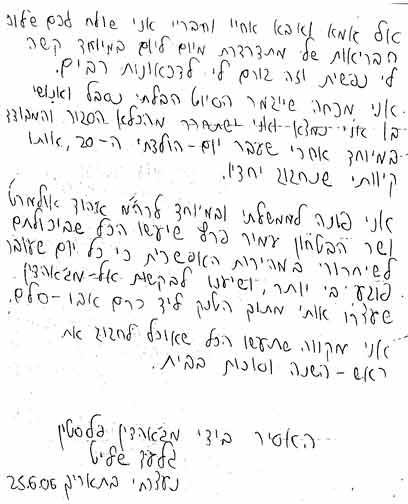 אל אמא ואבא אחיי וחבריי אני שולח לכם שלום
הבריאות שלי מתדרדרת מיום ליום במיוחד קשה
לי נפשית וזה גורם לי לדכאונות רבים.
אני מחכה שייגמר הסיוט הבלתי נסבל ואנושי
בו אני נמצא ואני שתחרר מהכלא הסגור והמבודד
במיוחד אחרי שעבר יום-הולדתי ה-20, אותו
קיוותי שנחגוג יחדיו.
אני פונה לממשלתי ובמיוחד לרה"מ אהוד אולמרט
ושר הבטחון עמיר פרץ שיעשו הכל שביכולתם
לשיחרורי במהירות האפשרית כי כל יום שעובר
פוגע בי יותר, ושיענו לבקשות אל-מג'אהדין
שעצרו אותי מתוך הטנק ליד כרם אבו-סלם.
אני מקווה שתעשו הכל שאוכל לחגוג את
ראש-השנה וסוכות בבית.
האסיר בידי מג'אהדין פלסטין
גלעד שליט
נעצרתי בתאריך 25.6.06